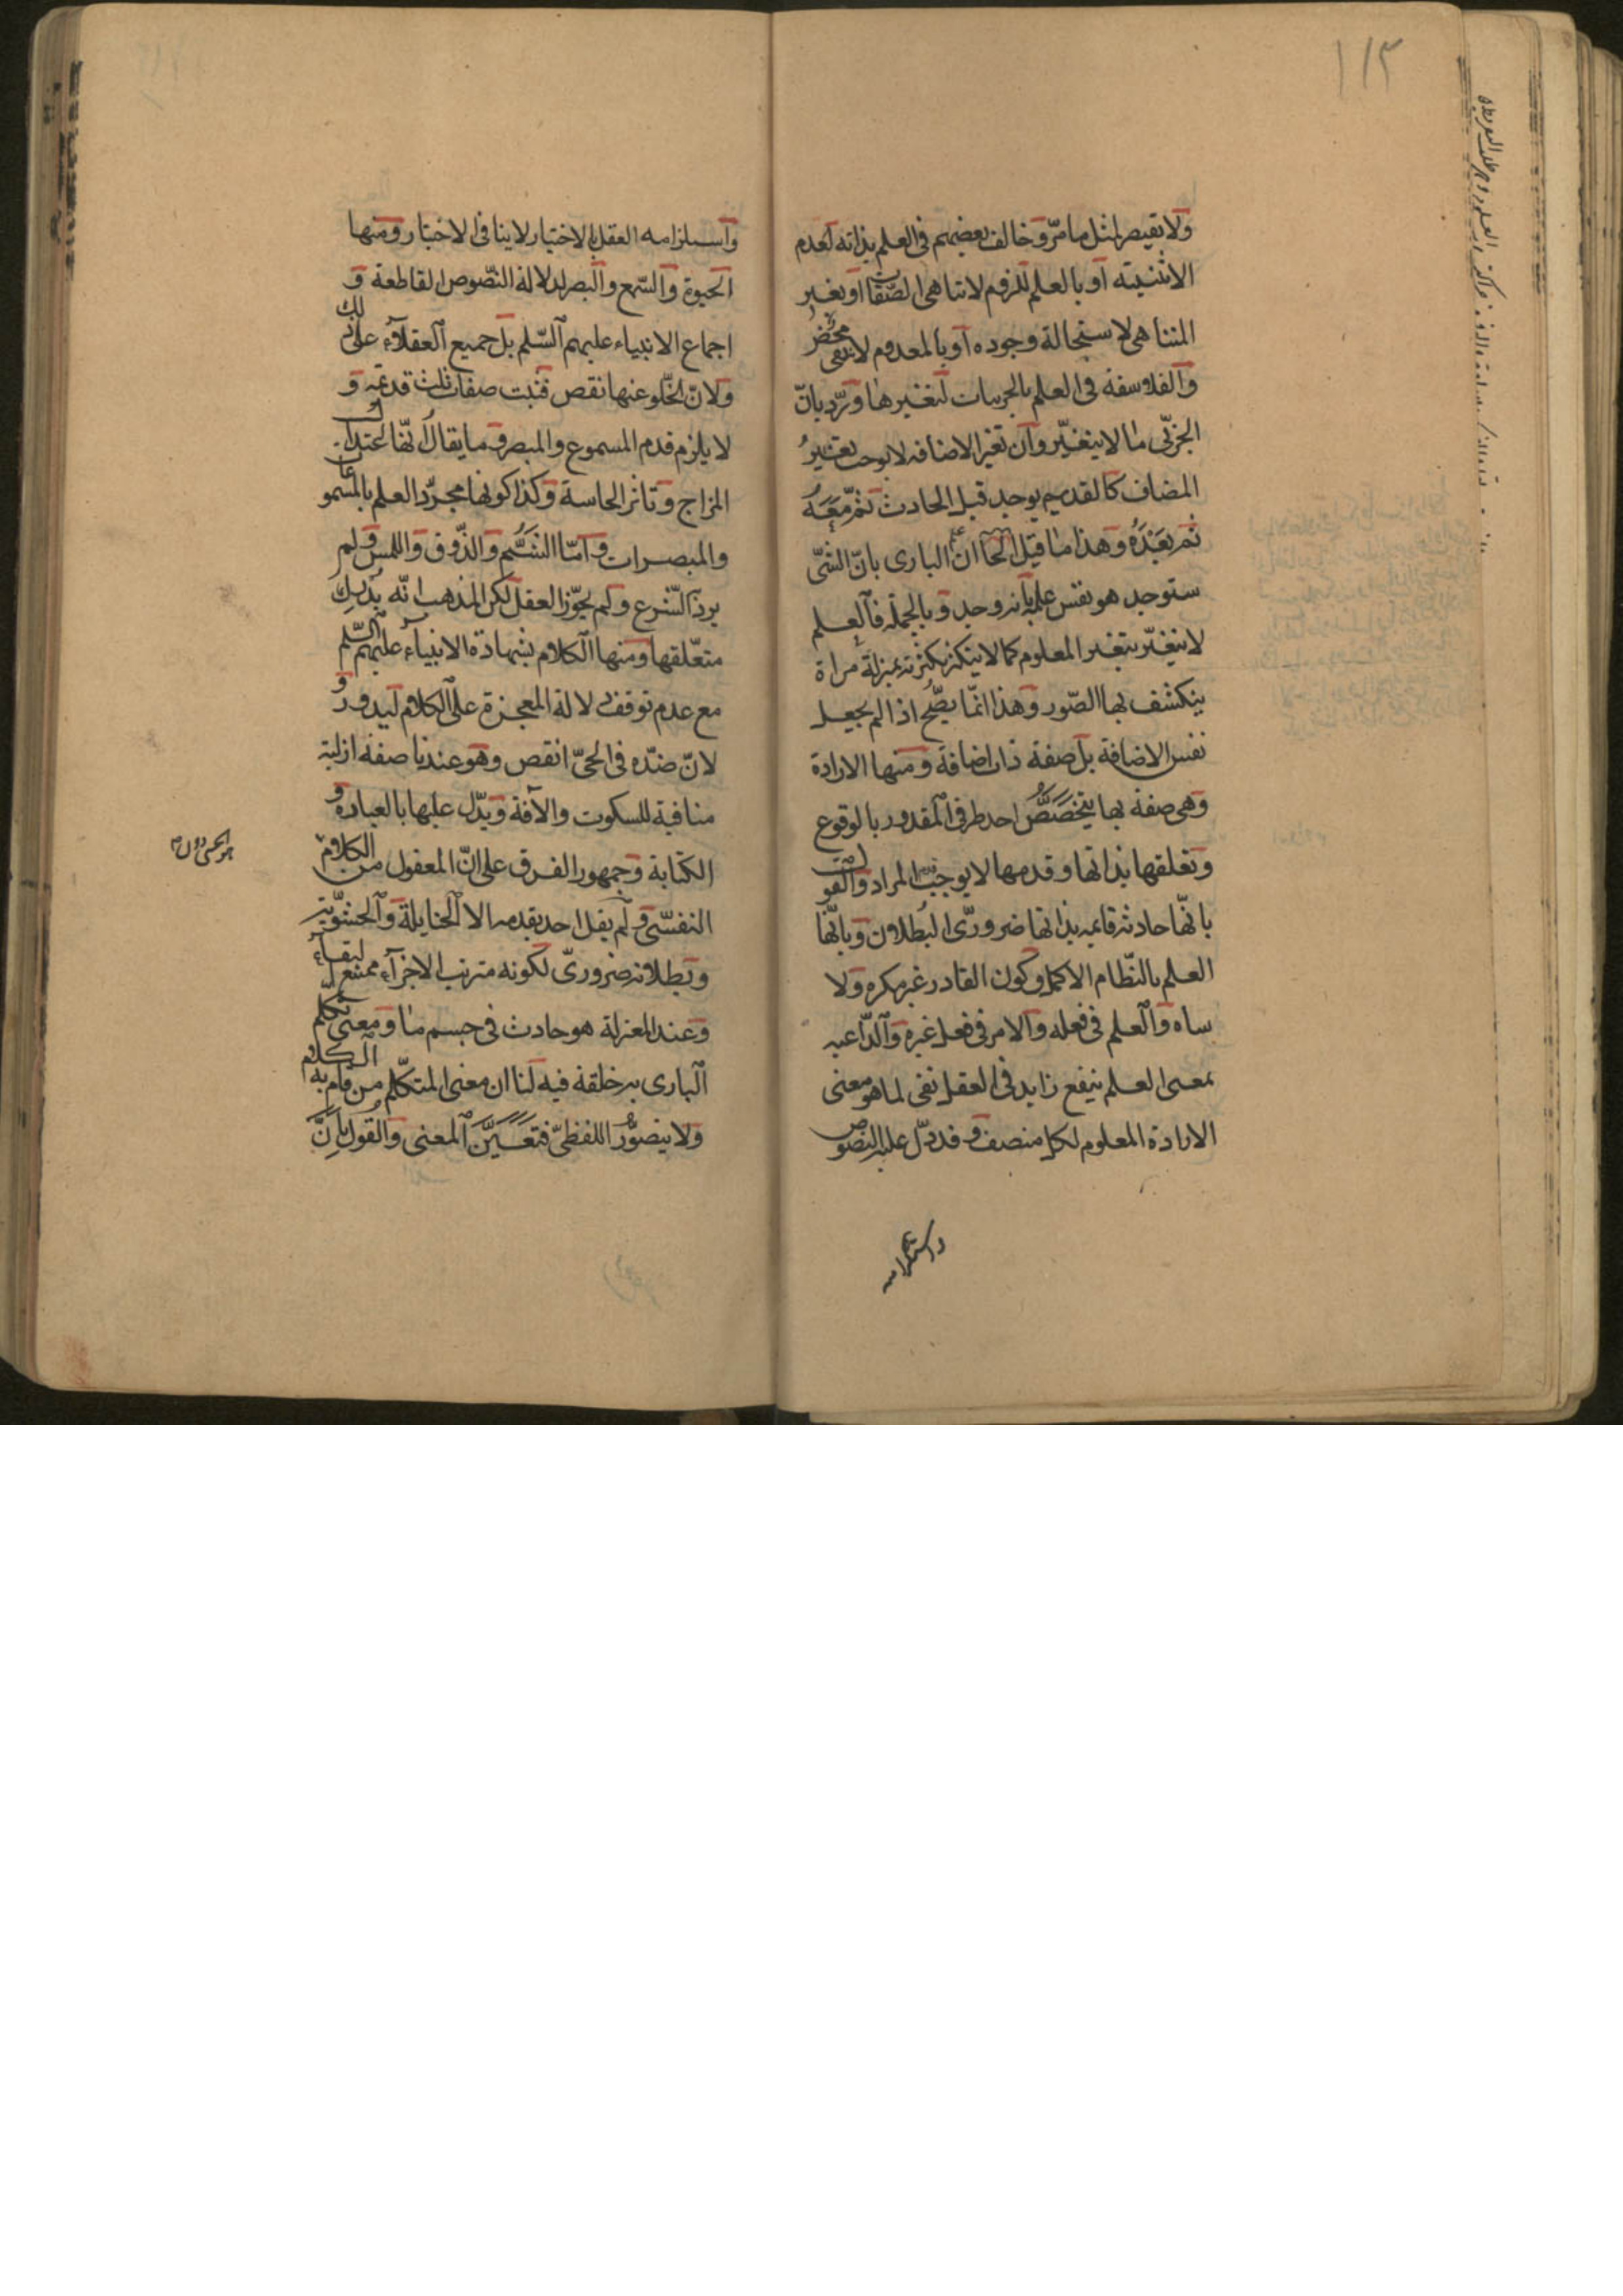 ١١٣
ولا تقيصر لمثل ما مرّ وخالف بعضهم فى العلم بذاته لعدم
الاثنينيّة او بالعلم للزوم لاتناهى الصّفات او بغير
المتناهى لاستحالة وجوده او بالمعدوم لانه نفى محض
والفلاسفة فى العلم بالجزييات لتغيرها وتردّ بانّ
الجزئى ما لا يتغيّر وان تغيّر الاضافه لا يوجب تغيّر
المضاف كالقديم يوجد قبل الحادث ثمّ معه
ثم بعده وهذا ما قيل ان علم البارى بانّ الشئ
ستوجد هو نفس علمه بانه وجد وبالجمله فالعلم
لا يتغيّر بتغير المعلوم كما لا يتكثر بكثرته بمنزلة مراة
ينكشف بها الصّور وهذا انمّا يصّح اذا لم يجعل
نفس الاضافة بل صفة ذات اضافة ومنها الارادة
وهى صفة بها يتخصّص احد طرفى المقدور بالوقوع
وتعلقها بذاتها وقدمها لا يوجب قدم المراد والقول
بانّها حادثه قايمه بذاتها ضرورىّ البطلان وبانّها
العلم بالنّظام الاكمل وكون القادر غير مكره ولا
ساه والعلم فى فعله والامر فى فعل غيره والدّاعيه
بمعنى العلم بنفع زايد فى العقل نفى لما هو معنى
الارادة المعلوم لكل منصف وقد دلّ عليه النصوص
واستلزامه
واستلزامه العقل بالاختيار لا ينافى الاختيار ومنها
الحيوة والسّمع والبصر لدلالة النّصوص القاطعة و
اجماع الانبياء عليهم السّلم بل جميع العقلاء على ذلك
ولانّ الخّلو عنها نقص فثبت صفات ثلث قديمه و
لا يلزم قدم المسموع والمبصر وما يقال انّها اعتدال
المزاج وتاثر الحاسة وكذا كونها مجرّد العلم بالمسموعات
والمبصرات وامّا الشّم والذّوق واللمس فلم
يرد الشّرع ولم يجوّز العقل لكن المذهب انّه يدرك
متعّلقها ومنها الكلام بشهادة الانبياء عليهم السّلم
مع عدم توقف دلالة المعجزة على الكلام ليدور و
لانّ ضدّه فى الحىّ نقص وهو عندنا صفة ازلية
منافية للسكوت والافة ويدّل عليها بالعبارة و
الكتابة وجمهور الفرق على انّ المعقول من الكلام
النفسّى ولم يقل احد بقدمه الا الحنابلة والحشّوية
وبطلانه ضرورىّ لكونه مترتب الاجزاء ممتنع البقاء
وعند المعتزلة هو حادث فى جسم ما ومعنى تكلّم
البارى به خلقه فيه لنا ان معنى المتكلّم من قام به الكلام
ولا يتصوّر اللفظىّ فتعيّن المعنى والقول بانّ